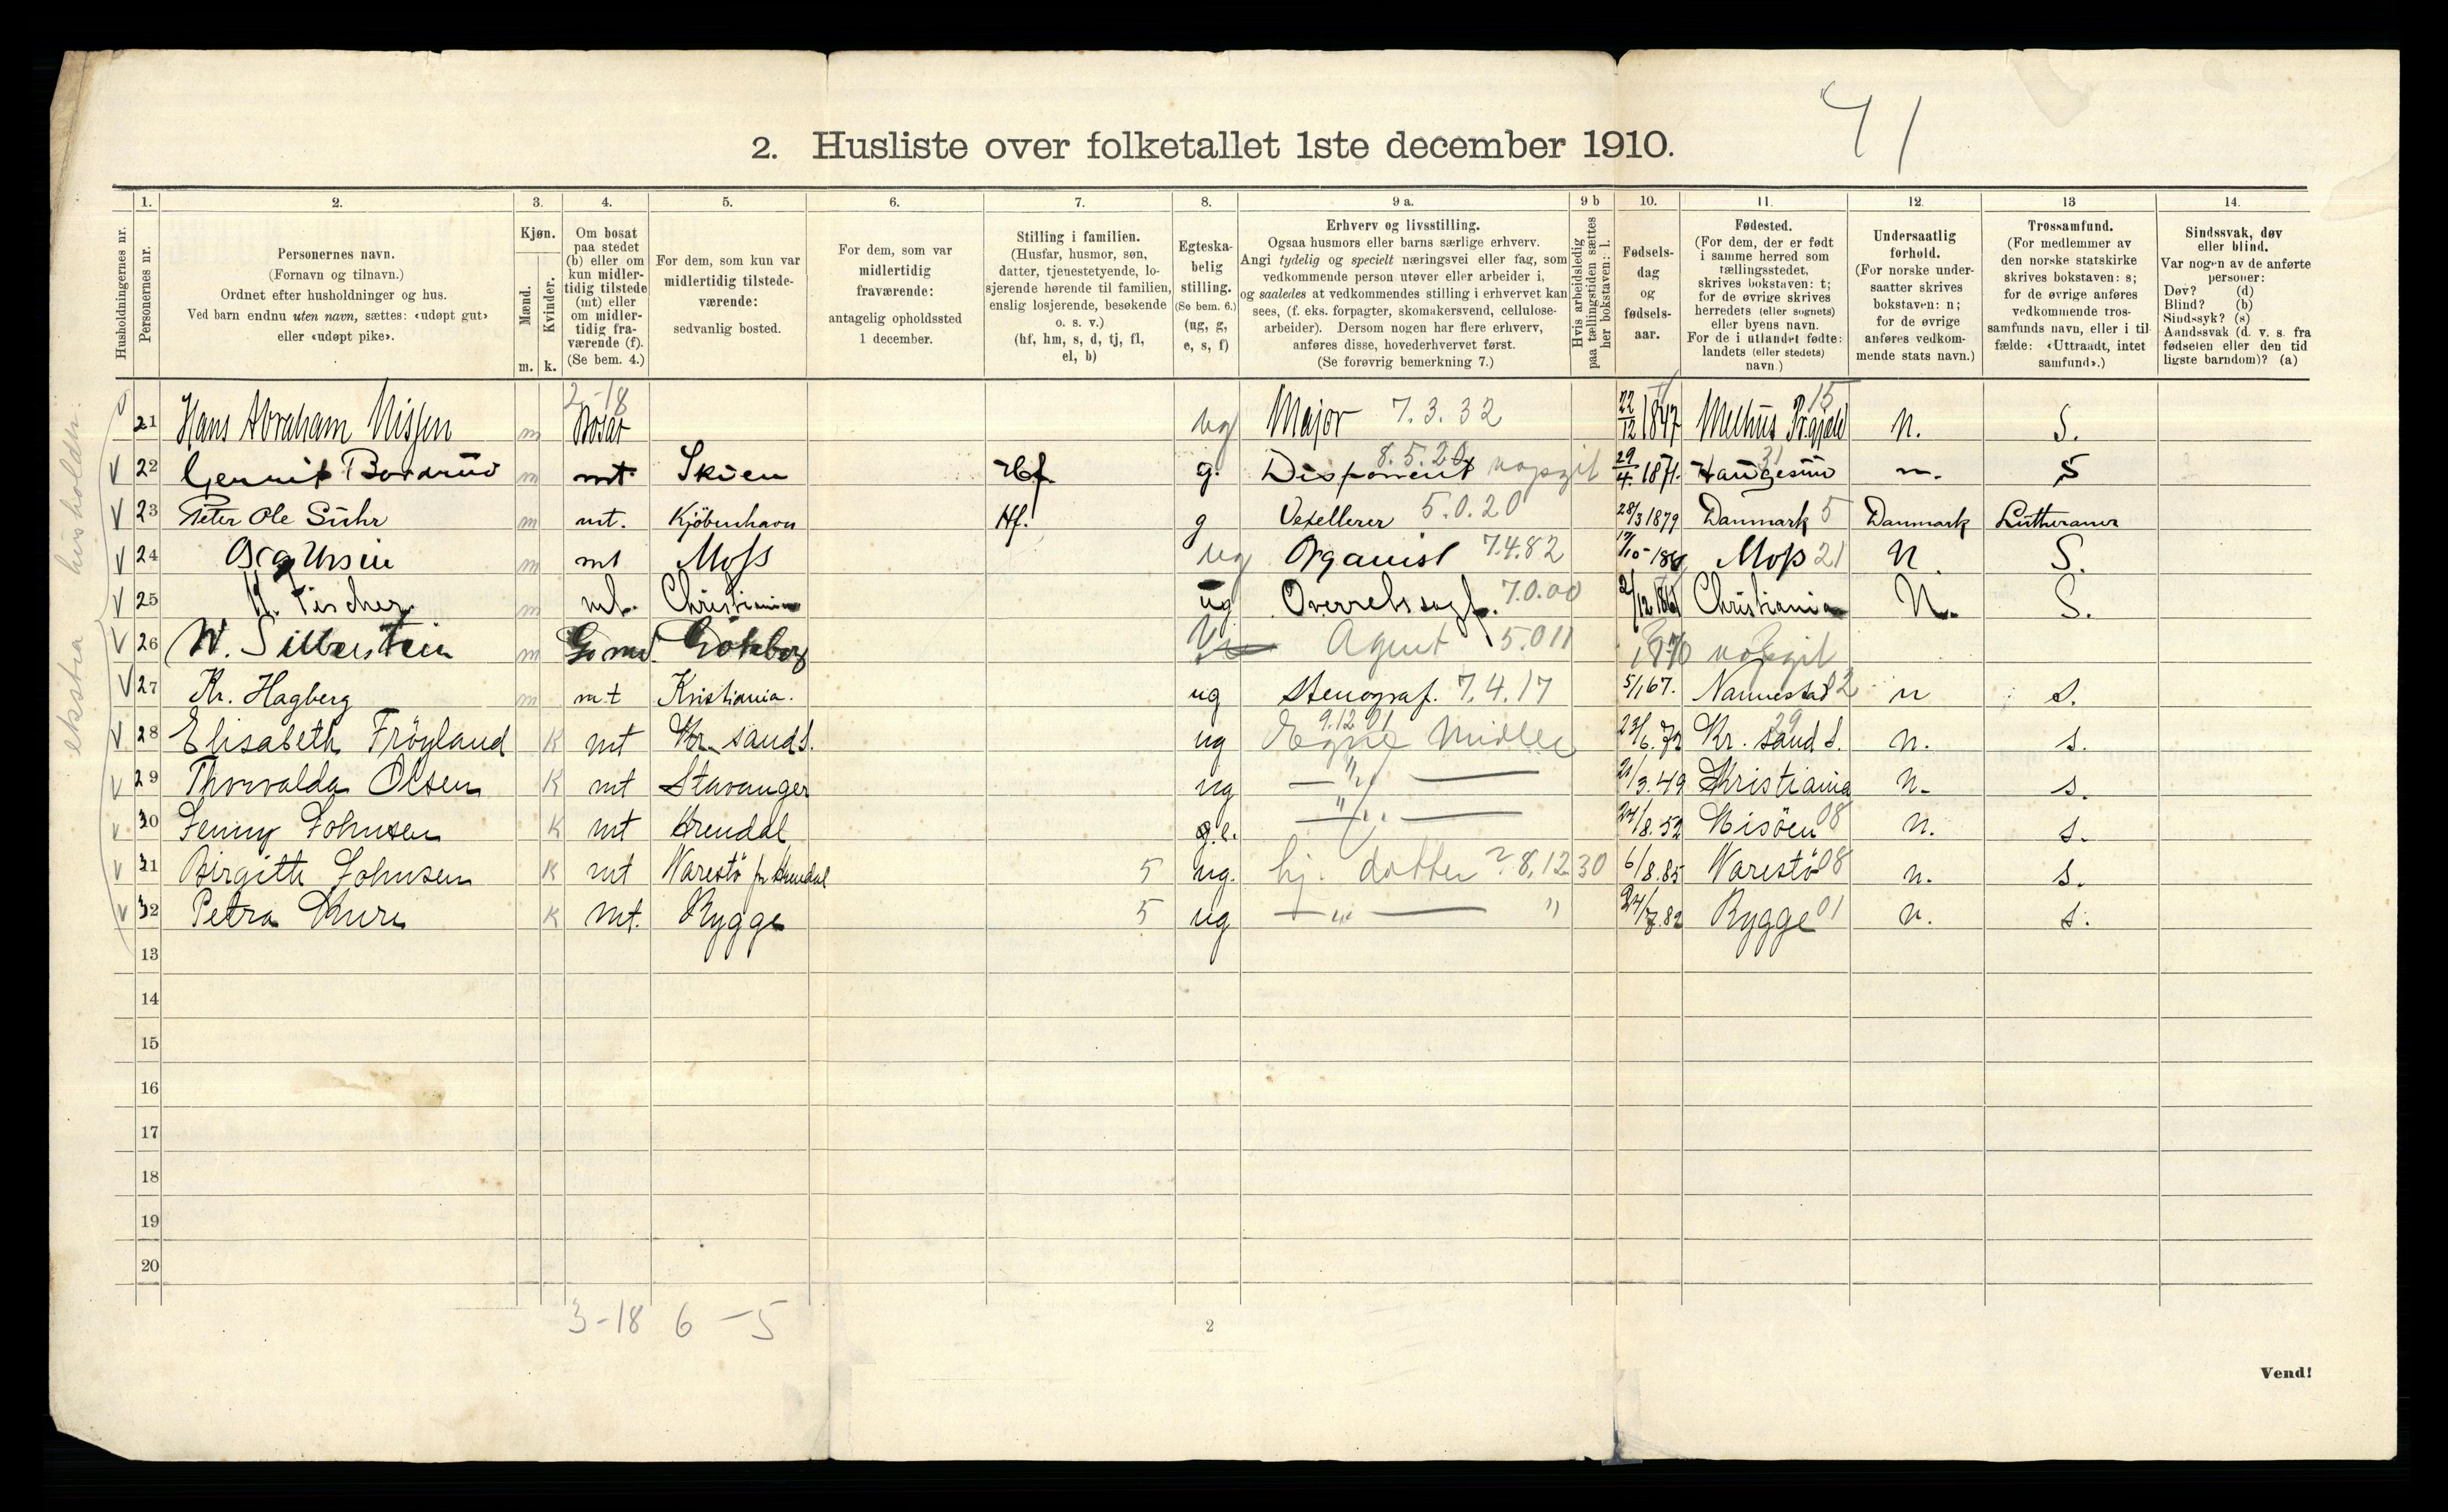 41
2. Husliste over folketallet 1ste december 1910.
1. 2. 3. 4. 5. 6. 7. 8. 9 a. 9 b 10. 11. 12. 13 14.
Husholdningernes nr.
Personernes nr.
Personernes navn.
(Fornavn og tilnavn.)
Ordnet efter husholdninger og hus.
Ved barn endnu uten navn, sættes: «udøpt gut»
eller «udøpt pike».
Kjøn.
Mænd.
Kvinder.
m. k.
Om bosat
paa stedet
(b) eller om
kun midler-
tidig tilstede
(mt) eller
om midler-
tidig fra-
værende (f).
(Se bem. 4.)
For dem, som kun var
midlertidig tilstede-
værende:
sedvanlig bosted.
For dem, som var
midlertidig
fraværende:
antagelig opholdssted
1 december.
Stilling i familien.
(Husfar, husmor, søn,
datter, tjenestetyende, lo-
sjerende hørende til familien,
enslig losjerende, besøkende
o. s. v.)
(hf, hm, s, d, tj, fl,
el, b)
Egteska-
belig
stilling.
(Se bem. 6.)
(ug, g,
e, s, f)
Erhverv og livsstilling.
Ogsaa husmors eller barns særlige erhverv.
Angi tydelig og specielt næringsvei eller fag, som
vedkommende person utøver eller arbeider i,
og saaledes at vedkommendes stilling i erhvervet kan
sees, (f. eks. forpagter, skomakersvend, cellulose-
arbeider). Dersom nogen har flere erhverv,
anføres disse, hovederhvervet først.
(Se forøvrig bemerkning 7.)
Hvis arbeidsledig
paa tællingstiden sættes
her bokstaven: l.
Fødsels-
dag
og
fødsels-
aar.
Fødested.
(For dem, der er født
i samme herred som
tællingsstedet,
skrives bokstaven: t;
for de øvrige skrives
herredets (eller sognets)
eller byens navn.
For de i utlandet fødte:
landets (eller stedets)
navn.)
Undersaatlig
forhold.
(For norske under-
saatter skrives
bokstaven: n;
for de øvrige
anføres vedkom-
mende stats navn.)
Trossamfund.
(For medlemmer av
den norske statskirke
skrives bokstaven: s;
for de øvrige anføres
vedkommende tros-
samfunds navn, eller i til-
fælde: «Uttraadt, intet
samfund».)
Sindssvak, døv
eller blind.
Var nogen av de anførte
personer:
Døv? (d)
Blind? (b)
Sindssyk? (s)
Aandssvak (d. v. s. fra
fødselen eller den tid
ligste barndom)? (a)
ekstra husholdn.
2-18 15
21 Hans Abraham Nissen m Bosat ug Major 7.3.32 22/12 1847 Melhus n. S.
V 22 Gerrit m mt. Skien Hf g. Disponent 8.5.20 uopgit 29/4 1871. Haugesund 31 n. S
V 23 Peter Ole Suhr m mt. Kjöbenhavn Hf. g Vexellerer 5.0.20 28/3 1879 Danmark 5 Danmark Lutheraner
V 24 m mt Moss ug Organist 7.4.82 Moss 21 N. S.
V 25 Fischer m mt. Christiania ug Overretssagf. 7.0.00 Christiania N. S.
V 26 W. Silberstein m Göteborg Agent 5.011 1870 uopgit
V 27 Kr. Hagberg m mt Kristiania. ug Stenograf. 7.4.17 5/1 67. Nannestad 2 n s.
V 28 Elisabeth Fröyland K mt Kr. sand S. ug Egne Midler 9.12.01 23/6. 72 Kr. sand S. 29 n. s.
V 29 Thorvalda Olsen K mt Stavanger ug — " — 21/3. 49 Kristiania n. s.
V 30 Jenny Johnsen K mt Arendal — " — 24/8. 52 Hisöen 08 n. s.
V 31 Birgith Johnsen K mt Narestö pr Arendal 5 ug. hj. datter ? 8.12.30 6/8. 85 Narestö 08 n. s.
V 32 Petra K mt. Rygge 5 ug — " — " Rygge 01 n. s.
13
14
15
16
17
18
19
20
3-18 6 - 5
2
Vend!